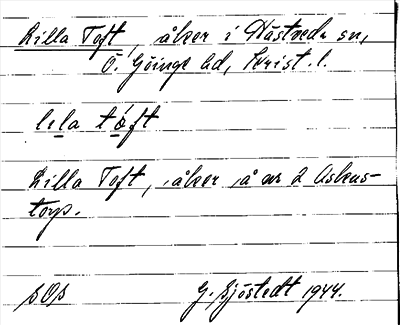 Lilla Toft, åker i Hästveda sn,
Ö. Göinge hd, Krist. l.
lela toft
Lilla Toft, åker å nr 2 Askens-
torp.
sOs G. Sjöstedt 1944.